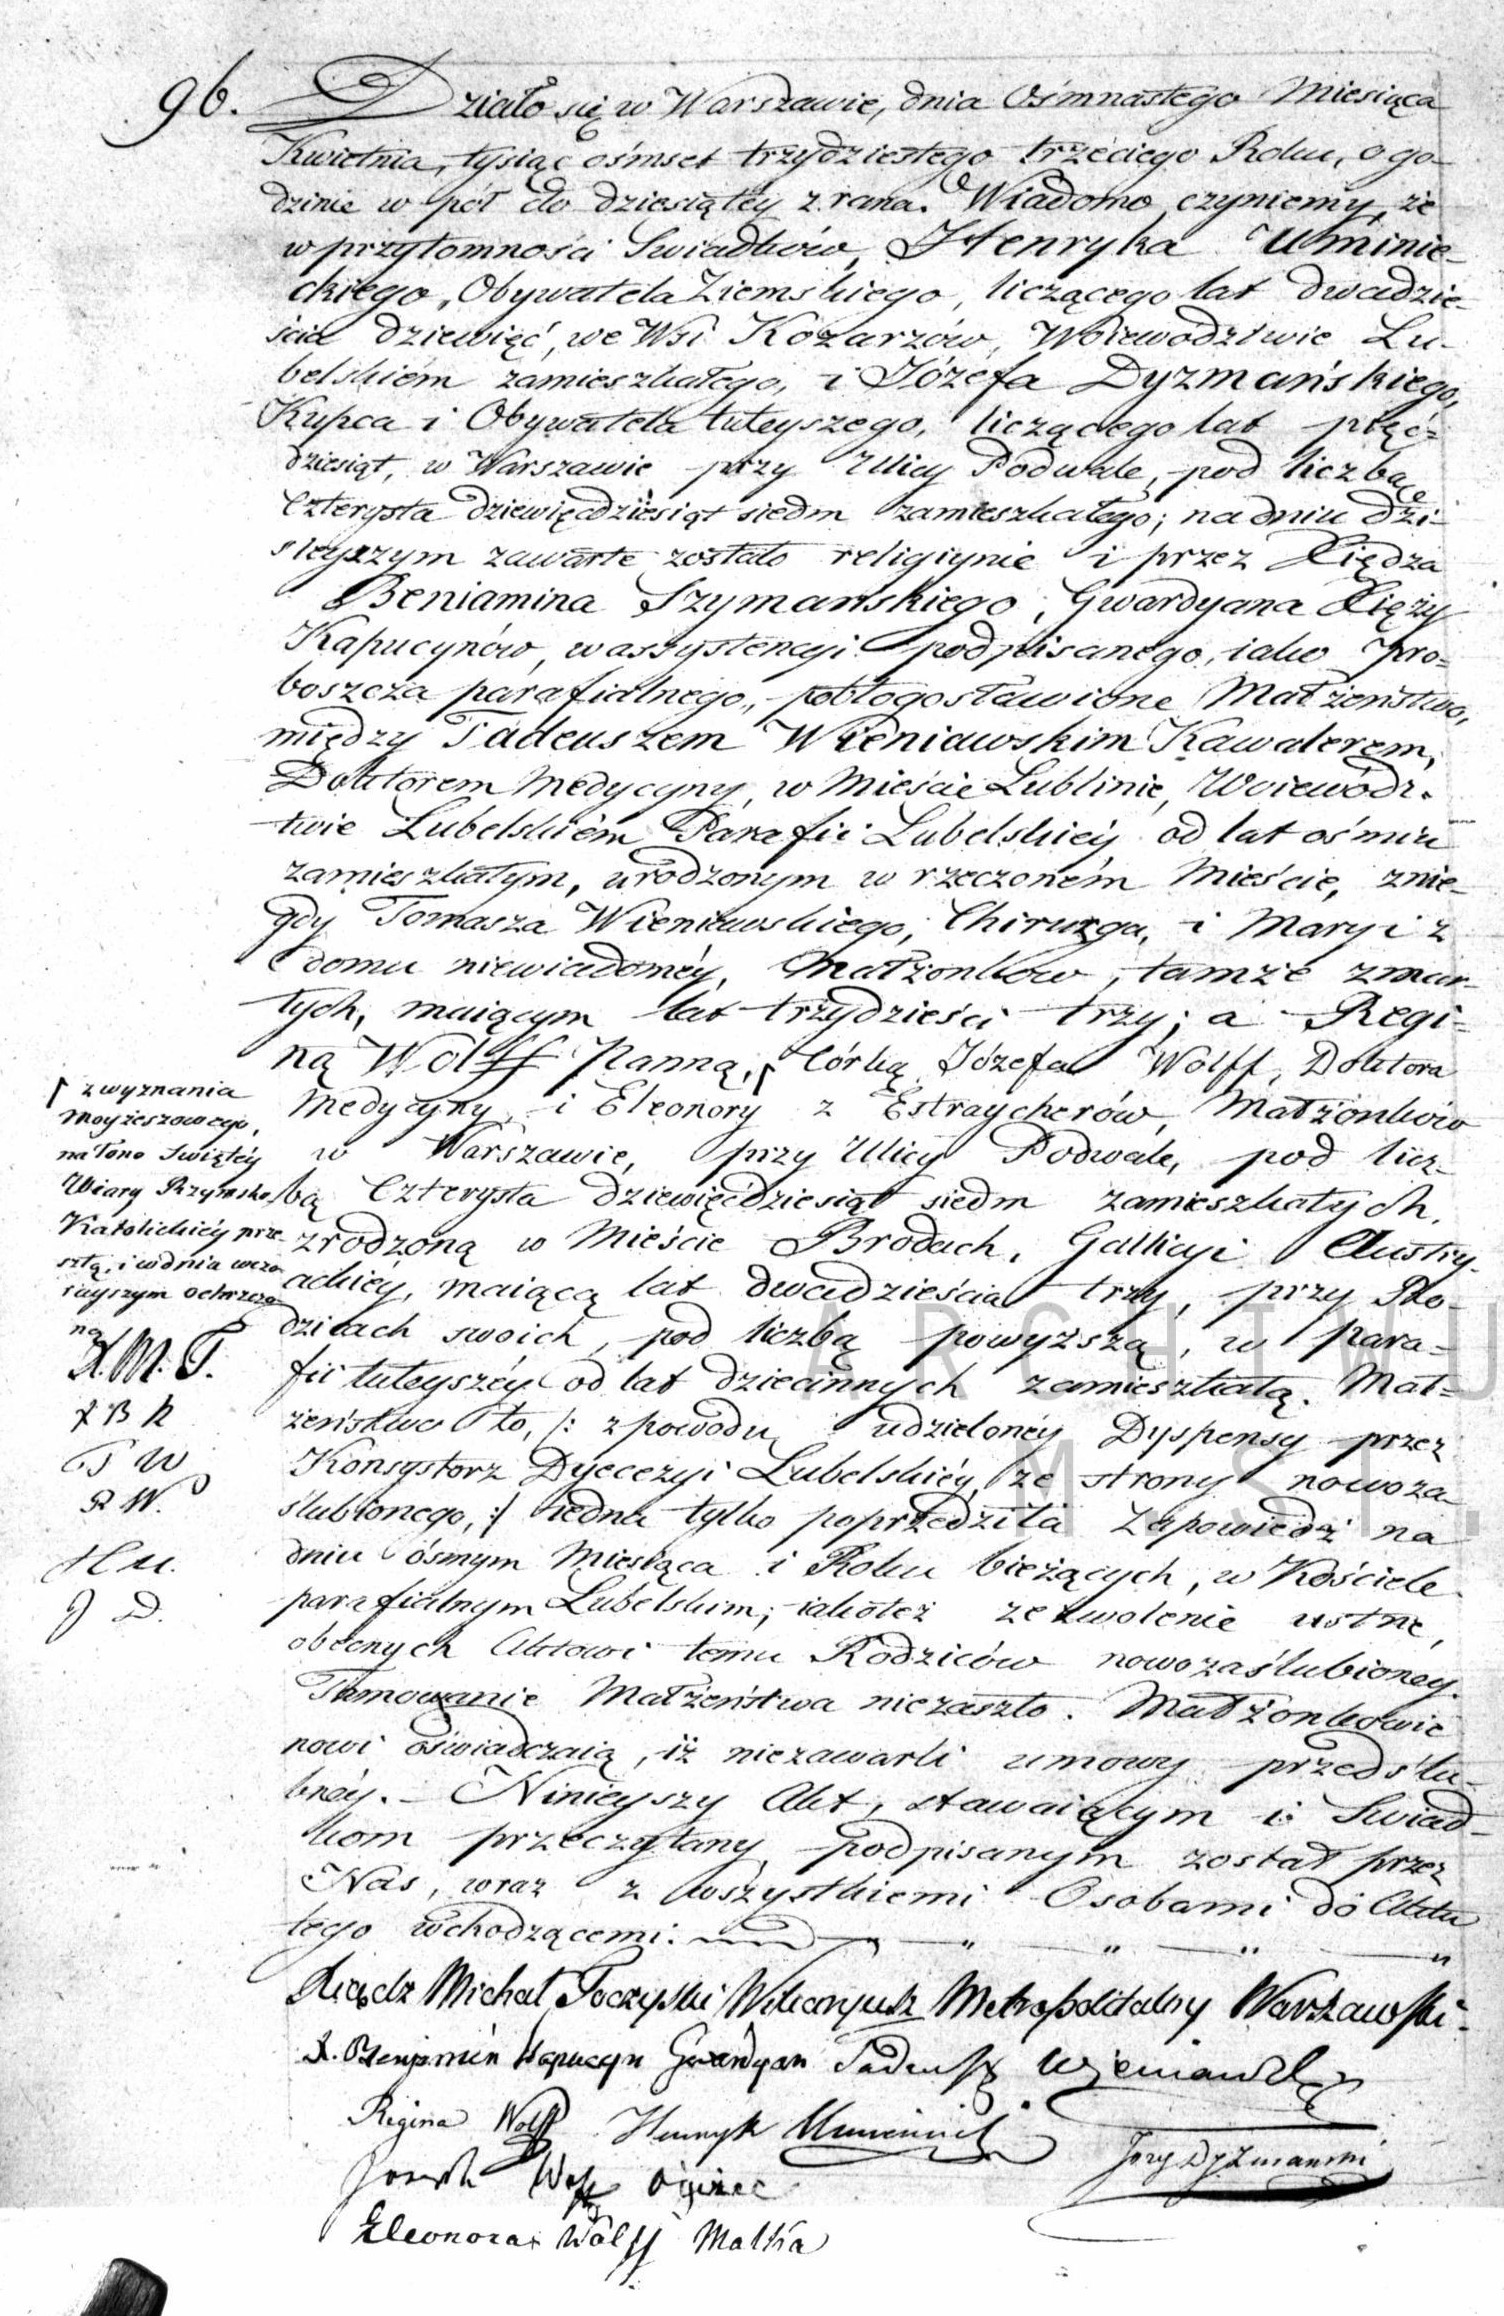 96. Działo się w Warszawie, dnia Ośmnastego Miesiąca
Kwietnia, tysiąc ośmset trzydziestego trzeciego Roku, o go-
dzinie w pół do dziesiątey z rana. Wiadomo czyniemy, że
w przytomności Swiadków, Henryka Uminie-
ckiego, Obywatela Ziemskiego, liczącego lat dwadzie-
ścia dziewięć, we Wsi Kozarzów, Woiewództwie Lu-
belskiém zamieszkałego, i Józefa Dyzmańskiego,
Kupca i Obywatela tuteyszego, liczącego lat pięć-
dziesiąt, w Warszawie przy Ulicy Podwale, pod liczbą
Czterysta dziewięćdziesiąt siedm zamieszkałego; na dniu dzi-
sieyszym zawarte zostało religiynie i przez Xiędza
Beniamina Szymanskiego, Gwardyana Xięży
Kapucynów, w assystencyi podpisanego, iako Pro-
boszcza parafialnego, pobłogosławione Małżeństwo,
między Tadeuszem Wieniawskim Kawalerem,
Doktorem Medycyny, w Mieście Lublinie, Woiewódz-
twie Lubelskiém Parafii Lubelskiéy od lat ośmiu
zamieszkałym, urodzonym w rzeczoném Mieście, z nie-
gdy Tomasza Wieniawskiego, Chirurga, i Maryi z
domu niewiadoméy, Małżonków, tamże zmar-
łych, maiącym lat trzydzieści trzy; a Regi-
ną Wolff Panną, ſ Córką Józefa Wolff, Doktora
Medycyny, i Eleonory z Estraycherów, Małżonków
w Warszawie, przy Ulicy Podwale, pod licz-
bą Czterysta dziewięćdziesiąt siedm zamieszkałych,
zrodzoną w Mieście Brodach, Gallicyi Austry-
ackiéy, maiącą lat dwadzieścia trzy, przy Ro-
dzicach swoich, pod liczbą powyższą, w para-
fii tuteyszéy od lat dziecinnych zamieszkałą. Mał-
żeństwo to, /: z powodu udzielonéy Dyspensy przez
Konsystorz Dyecezyi Lubelskiéy, ze strony nowoza-
ślubionego, :/ iedna tylko poprzedziła Zapowiedź na
dniu ósmym Miesiąca i Roku bieżących, w Kościele
parafialnym Lubelskim; iakoteż zezwolenie ustne,
obecnych Aktowi temu Rodziców nowozaślubionéy.
Tamowanie Małżeństwa niezaszło. Małżonkowie
nowi oświadczaią, iż niezawarli umowy przedślu-
bnéy. – Ninieyszy Akt, stawaiącym i Swiad-
kom przeczytany, podpisanym został przez
Nas, wraz z wszystkiemi Osobami do Aktu
tego wchodzącemi.
ſ z wyznania
Moyżeszowego,
na łono Swiętéy
Wiary Rzymsko
Katolickiéy prze-
szłą, i w dniu wczo-
rayszym ochrzczo-
ną
X. M. T.
X B K
T W
R W.
H U.
J D.
Xiądz Michał Toczyski Wikaryusz Metropolitalny Warszawski.
X. Beniamin Kapucyn Gwardyan Tadeusz Wieniawski
Regina Wolff Henryk Uminiecki
Józef Dyzmański
Joseph Wolff Oyciec
Eleonora Wolff Matka
ARCHIWU
M ST.